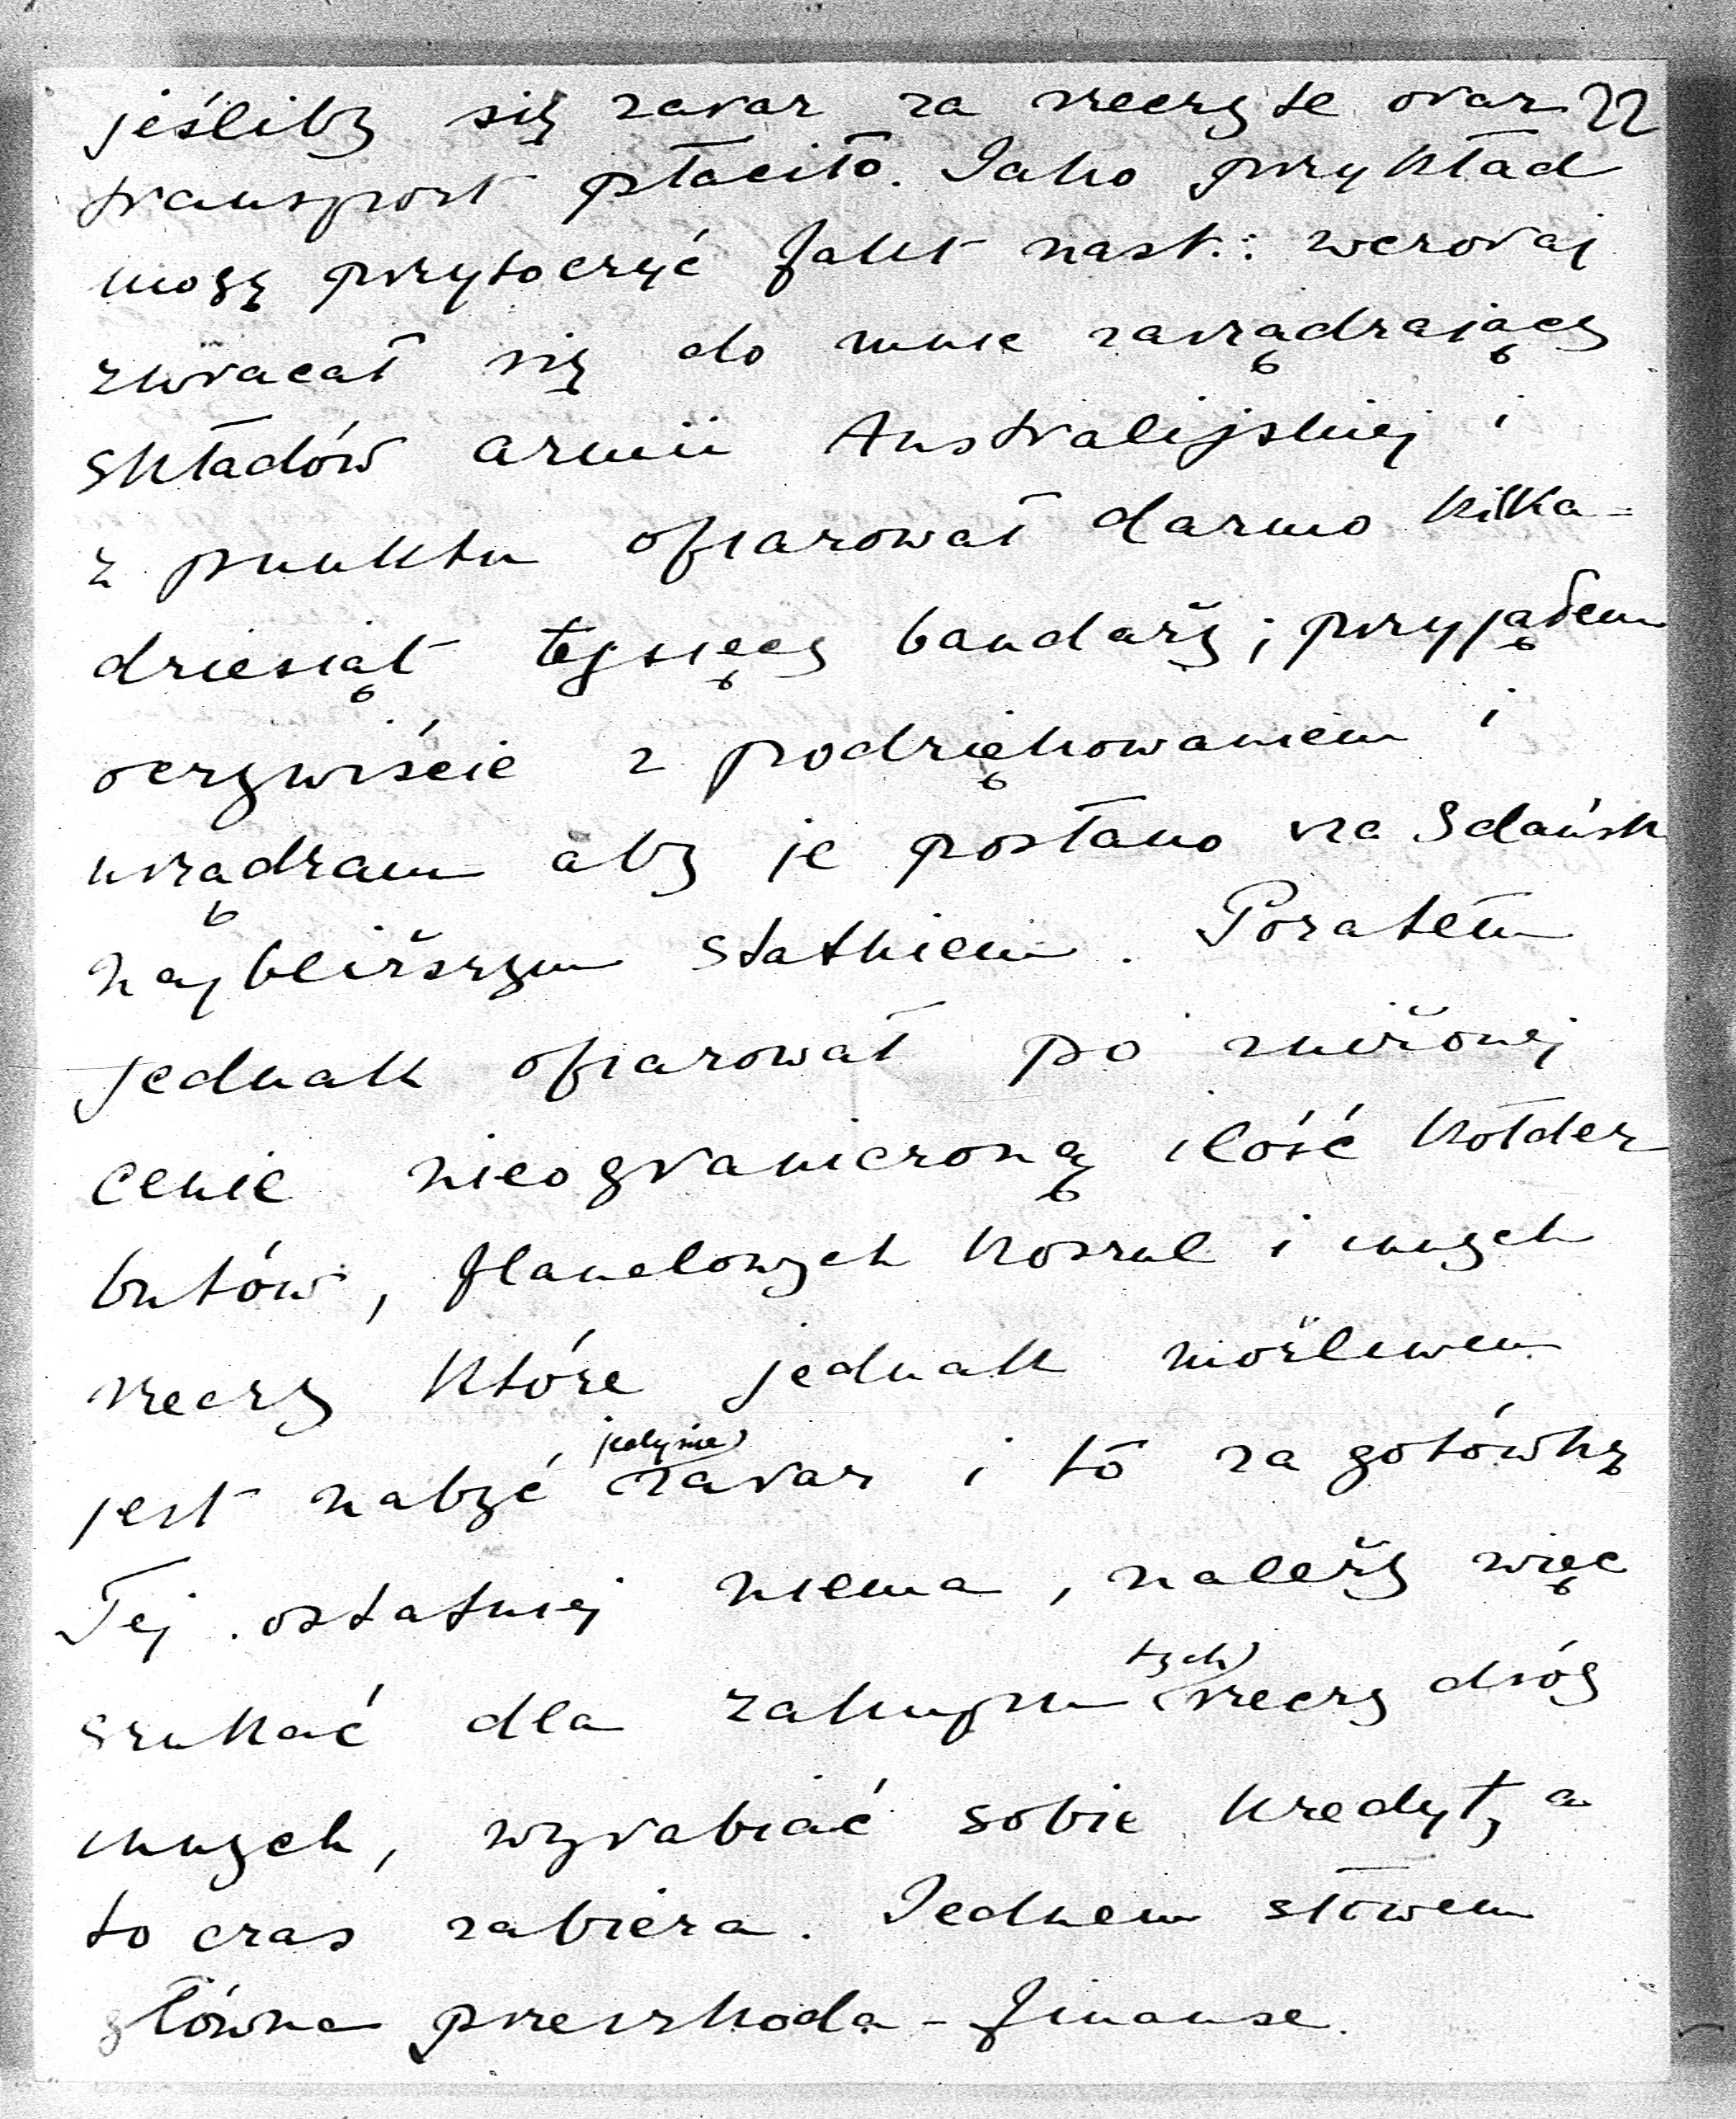 jeśliby się zaraz za rzeczy te oraz 22
transport płaciło. Jako przykład
mogę przytoczyć fakt nast.: wczoraj
zwracał się do mnie zarządzający
składów armii Australijskiej i
z punktu ofiarował darmo kilka-
dziesiąt tysięcy bandaży; przyjąłem
oczywiście z podziękowaniem i
urządzam aby je posłano via Gdańsk
najbliższym statkiem. Pozatem
jednak ofiarował po zniżonej
cenie nieograniczoną ilość kołder
butów, flanelowych koszul i innych
rzeczy które jednak możliwem
jest nabyć jedynie zaraz i to za gotówkę
Tej ostatniej niema, należy więc
szukać dla zakupu tych rzeczy dróg
innych, wyrabiać sobie kredyt, a
to czas zabiera. Jednem słowem
główna przeszkoda - finanse.